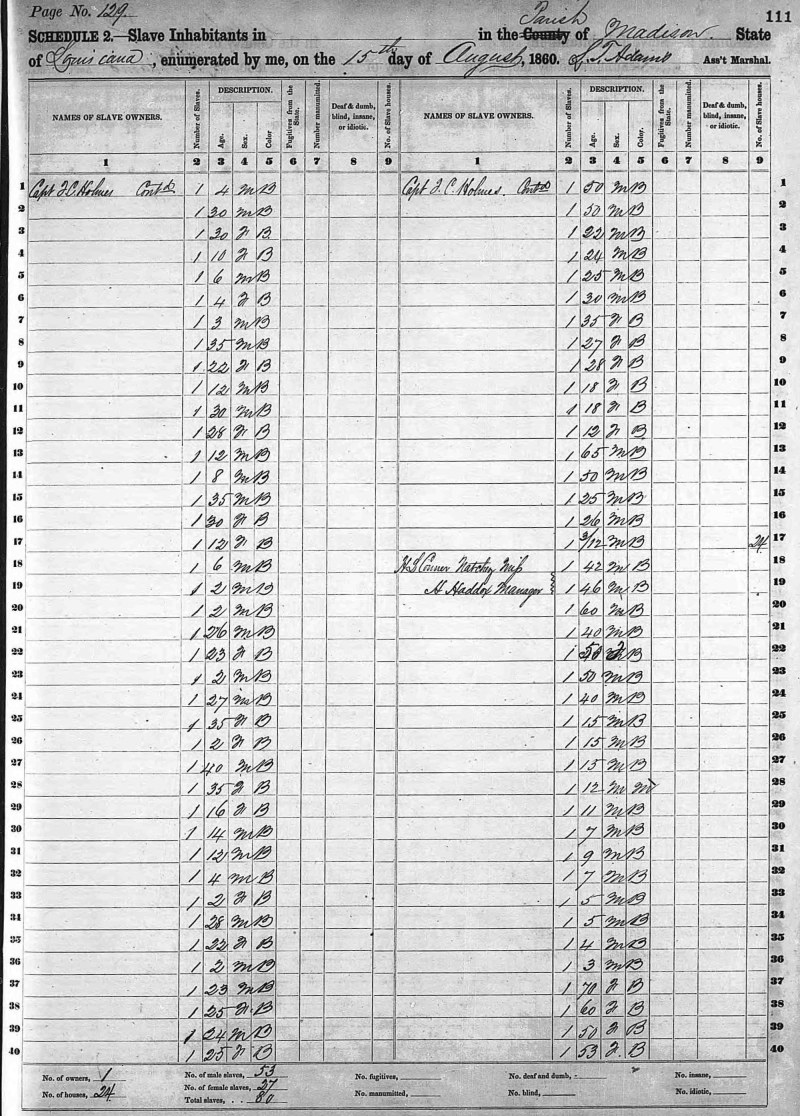 Page No. 129.
111
SCHEDULE 2.—Slave Inhabitants in in the County Parish of Madison. State
of Louisiana, enumerated by me, on the 15th day of August, 1860. S. T. Adams Ass't Marshal.
NAMES OF SLAVE OWNERS. Number of Slaves. DESCRIPTION. Age. Sex. Color. Fugitives from the State. Number manumitted. Deaf & dumb, blind, insane, or idiotic. No. of Slave houses. NAMES OF SLAVE OWNERS. Number of Slaves. DESCRIPTION. Age. Sex. Color. Fugitives from the State. Number manumitted. Deaf & dumb, blind, insane, or idiotic. No. of Slave houses.
1 2 3 4 5 6 7 8 9 1 2 3 4 5 6 7 8 9
1 Capt F C Holmes Contd 1 4 M B Capt F. C. Holmes. Contd 1 50 M B 1
2 1 30 M B 1 50 M B 2
3 1 30 F B 1 22 M B 3
4 1 10 F B 1 24 M B 4
5 1 6 M B 1 25 M B 5
6 1 4 F B 1 30 M B 6
7 1 3 M B 1 35 F B 7
8 1 35 M B 1 27 F B 8
9 1 22 F B 1 28 F B 9
10 1 12 M B 1 18 F B 10
11 1 30 M B 1 18 F B 11
12 1 28 F B 1 12 F B 12
13 1 12 M B 1 65 M B 13
14 1 8 M B 1 50 M B 14
15 1 35 M B 1 25 M B 15
16 1 30 F B 1 26 M B 16
17 1 12 F B 1 3/12 M B 24 17
18 1 6 M B H L Conner Natchez Miss 1 42 M B 18
19 1 2 M B H Haddox Manager 1 46 M B 19
20 1 2 M B 1 60 M B 20
21 1 26 M B 1 40 M B 21
22 1 23 F B 1 50 F B 22
23 1 2 M B 1 50 M B 23
24 1 27 M B 1 40 M B 24
25 1 35 F B 1 15 M B 25
26 1 2 F B 1 15 M B 26
27 1 40 M B 1 15 M B 27
28 1 35 F B 1 12 M M 28
29 1 16 F B 1 11 M B 29
30 1 14 M B 1 7 M B 30
31 1 12 M B 1 9 M B 31
32 1 4 M B 1 7 M B 32
33 1 2 F B 1 5 M B 33
34 1 28 M B 1 5 M B 34
35 1 22 F B 1 4 M B 35
36 1 2 M B 1 3 M B 36
37 1 23 M B 1 70 F B 37
38 1 25 F B 1 60 F B 38
39 1 24 M B 1 50 F B 39
40 1 25 F B 1 53 F. B 40
No. of owners, 1 No. of male slaves, 53 No. fugitives, No. of deaf and dumb, No. insane,
No. of houses, 24 No. of female slaves, 27 No. manumitted, No. blind, No. idiotic,
Total slaves, . . 80